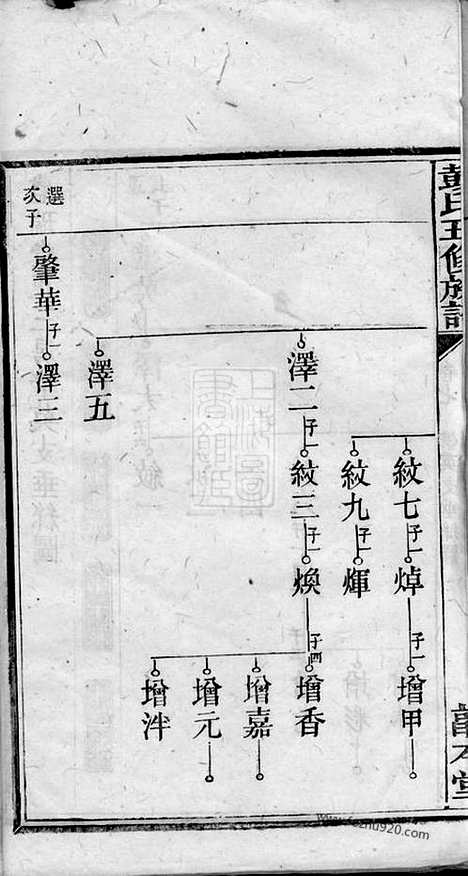 彭氏五修族譜
紋七
子一
焯
子一
增甲
紋九
子一
煇
澤二
子一
紋三
子一
煥
子四
增香
增嘉
增元
增泮
澤五
選次子
肇華
子一
澤三
上海圖書館藏